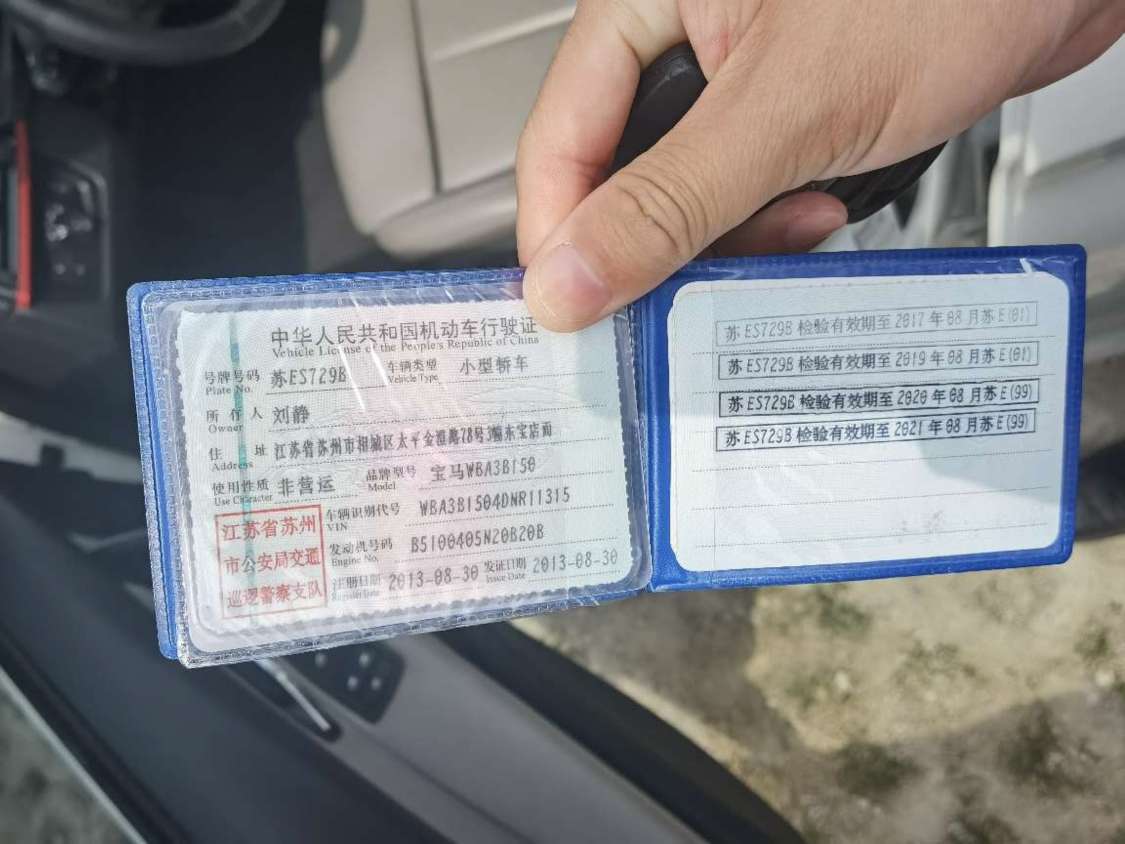 中华人民共和国机动车行驶证
Vehicle License of the People's Republic of China
号牌号码 苏ES729B 车辆类型 小型轿车
Plate No. Vehicle Type
所有人 刘静
Owner
住址 江苏省苏州市相城区太平金澄路78号3幢东宝店面
Address
使用性质 非营运 品牌型号 宝马WBA3B150
Use Character Model
车辆识别代号 WBA3B1504DNR11315
VIN
发动机号码 B5100405N20B20B
Engine No.
注册日期 2013-08-30 发证日期 2013-08-30
Register Date Issue Date
江苏省苏州
市公安局交通
巡逻警察支队
苏ES729B 检验有效期至 2017 年 08 月苏E(01)
苏ES729B 检验有效期至 2019 年 08 月苏E(01)
苏ES729B 检验有效期至 2020 年 08 月苏E(99)
苏ES729B 检验有效期至 2021 年 08 月苏E(99)